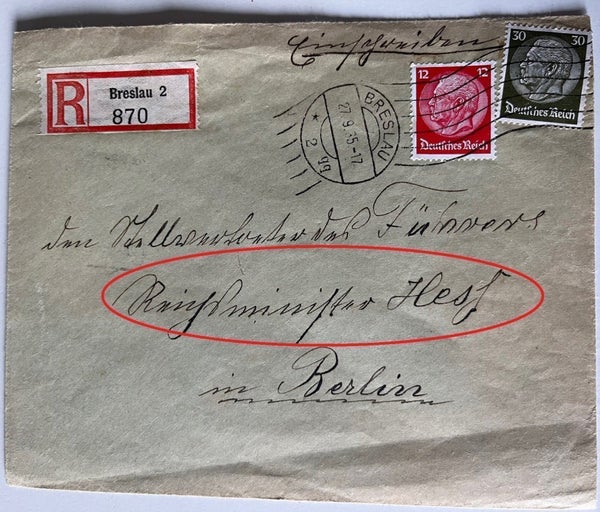 Einschreiben
R Breslau 2
870
BRESLAU
27.9.35-17
* 2 gg
12 12
Deutsches Reich
30 30
Deutsches Reich
den Stellvertreter des Führers
Reichsminister Heß
in Berlin